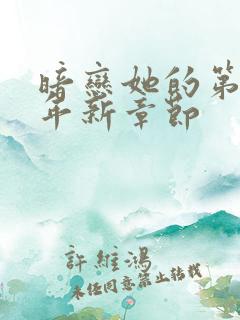 暗戀她的第
年新章節
許維鴻
未經同意禁止轉載